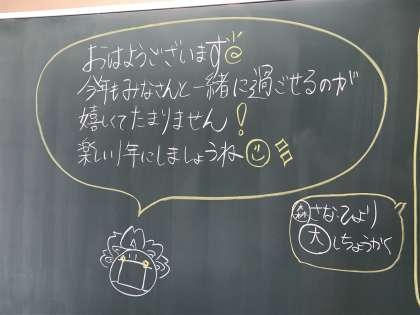 おはようございます
今年もみなさんと一緒に過ごせるのが
嬉しくてたまりません!
楽しい1年にしましょうね
さな・ひより
大 しちょうかく